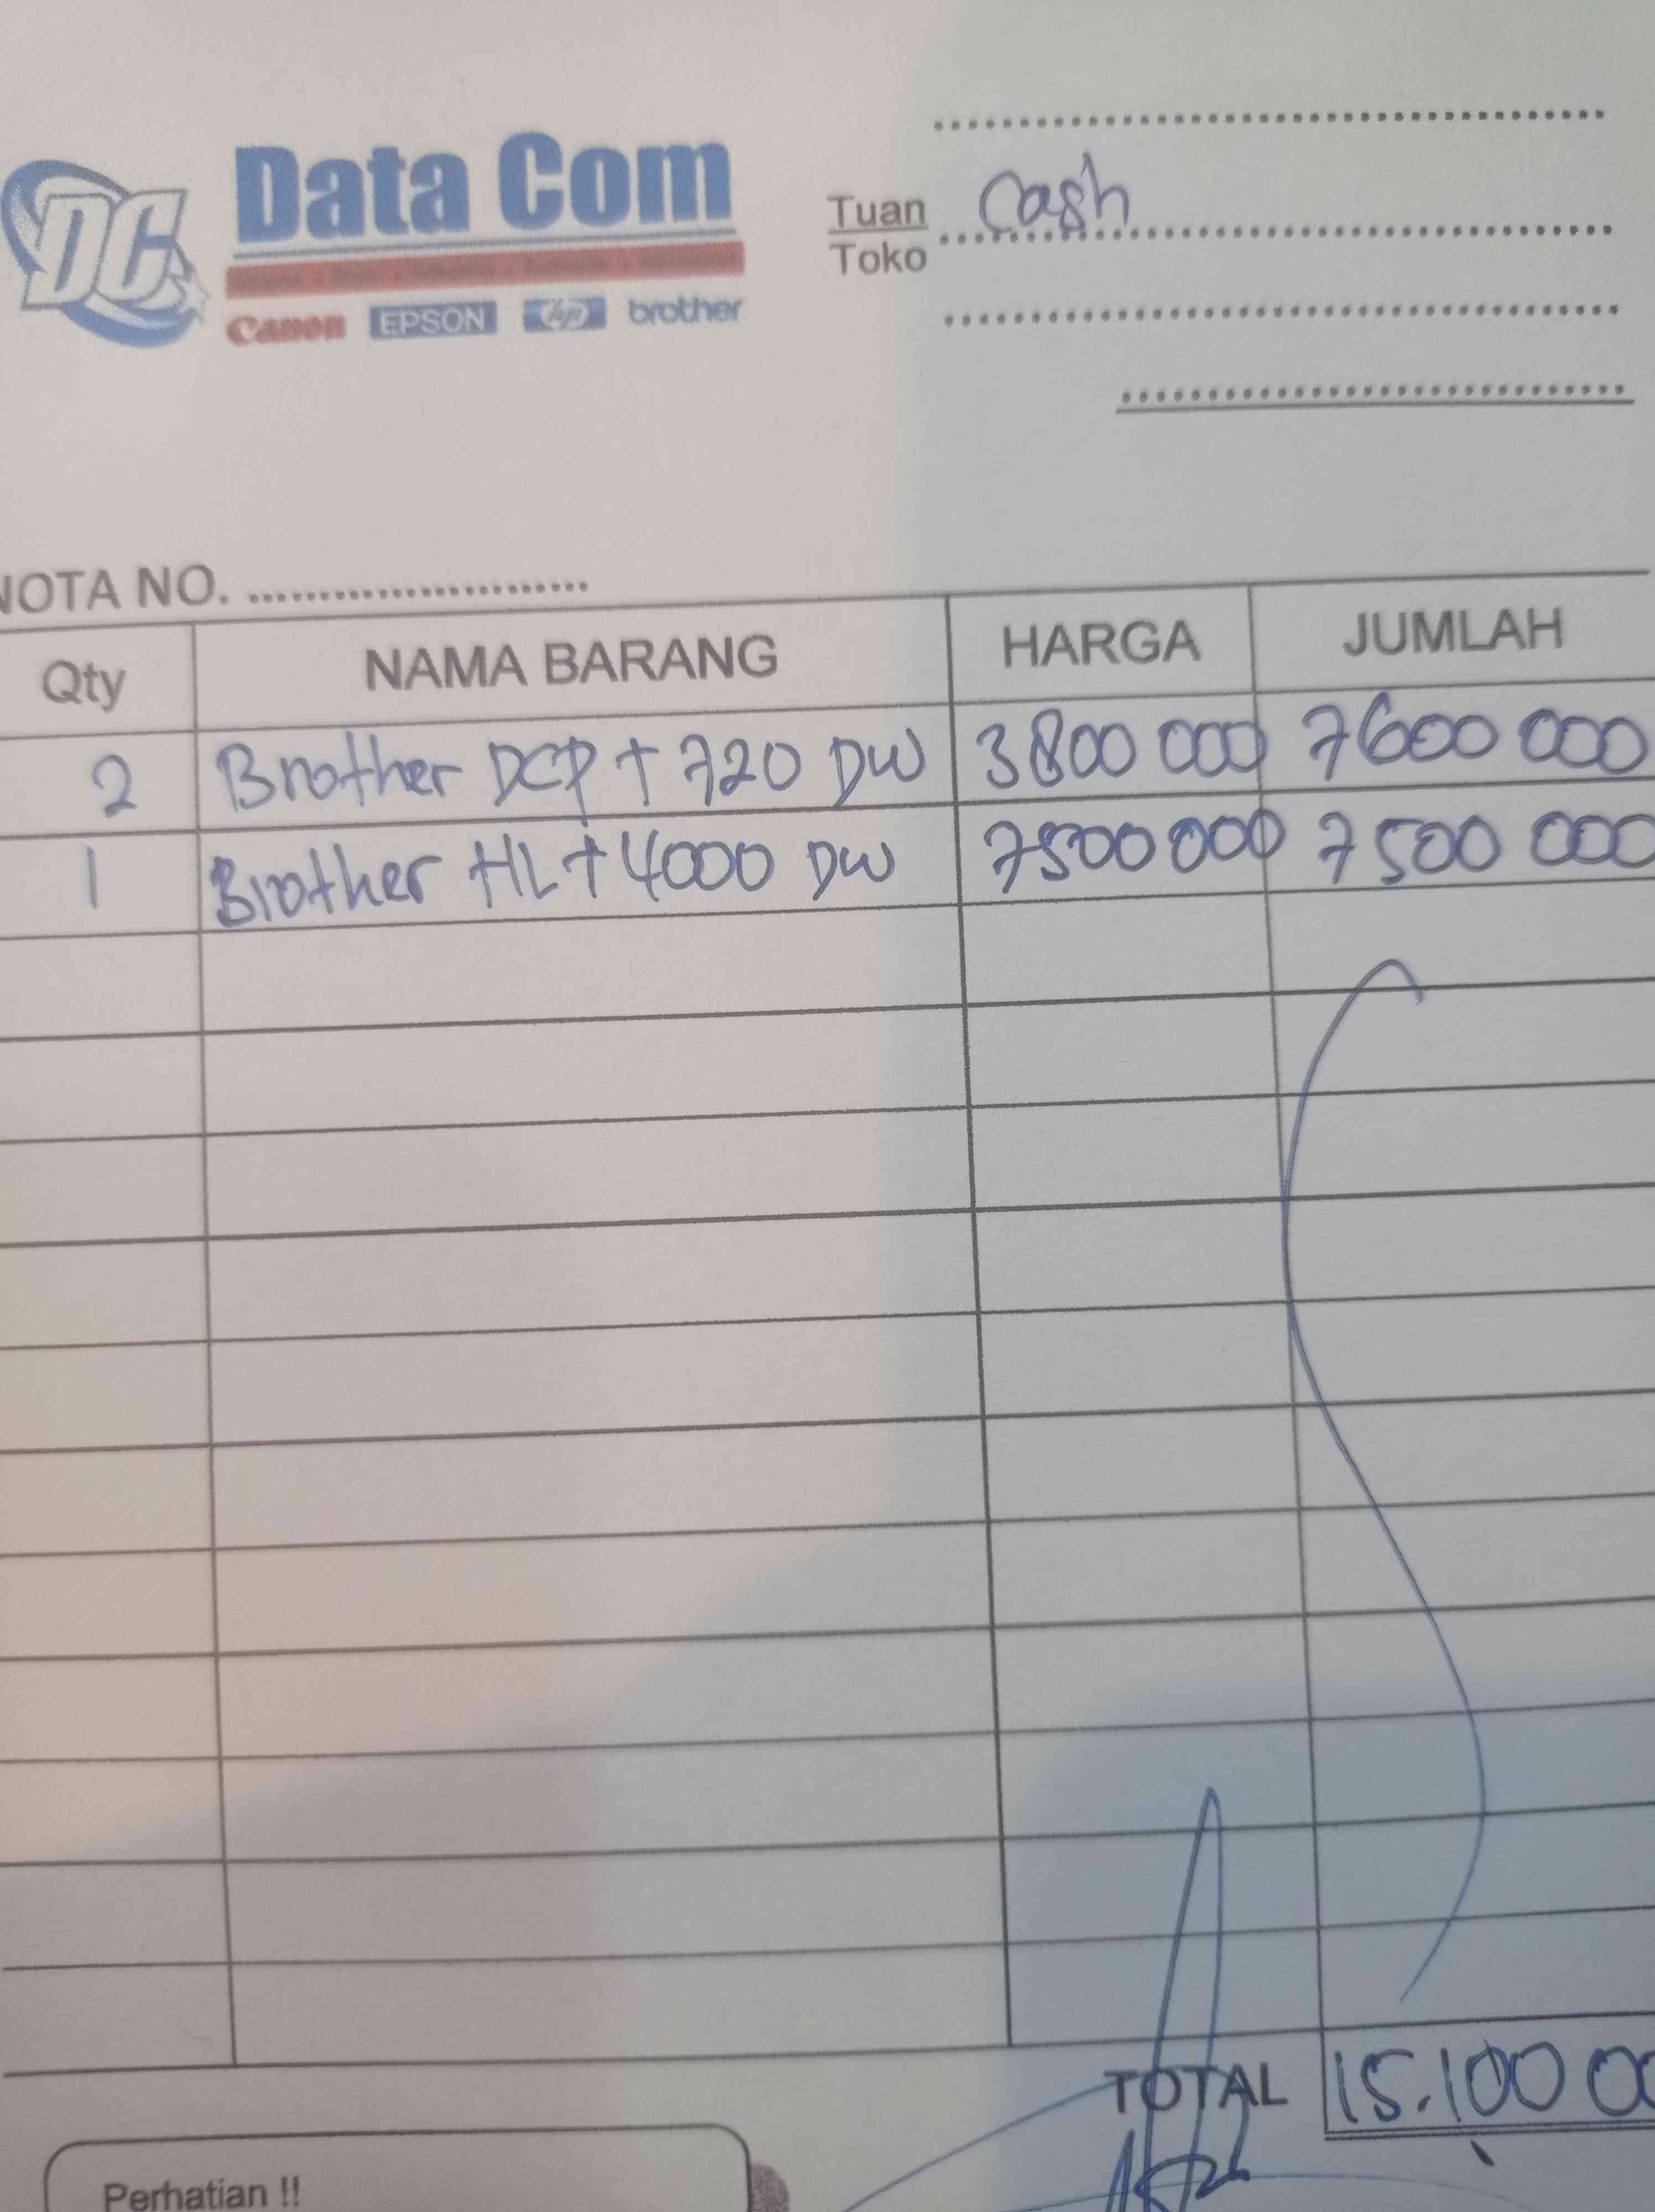 DC
Data Com
Canon EPSON hp brother
Tuan Cash
Toko
NOTA NO. ........................
Qty NAMA BARANG HARGA JUMLAH
2 Brother DCP T 720 DW 3800 000 7600 000
1 Brother HL T 4000 DW 7500 000 7 500 000
TOTAL 15.100 00
Perhatian !!